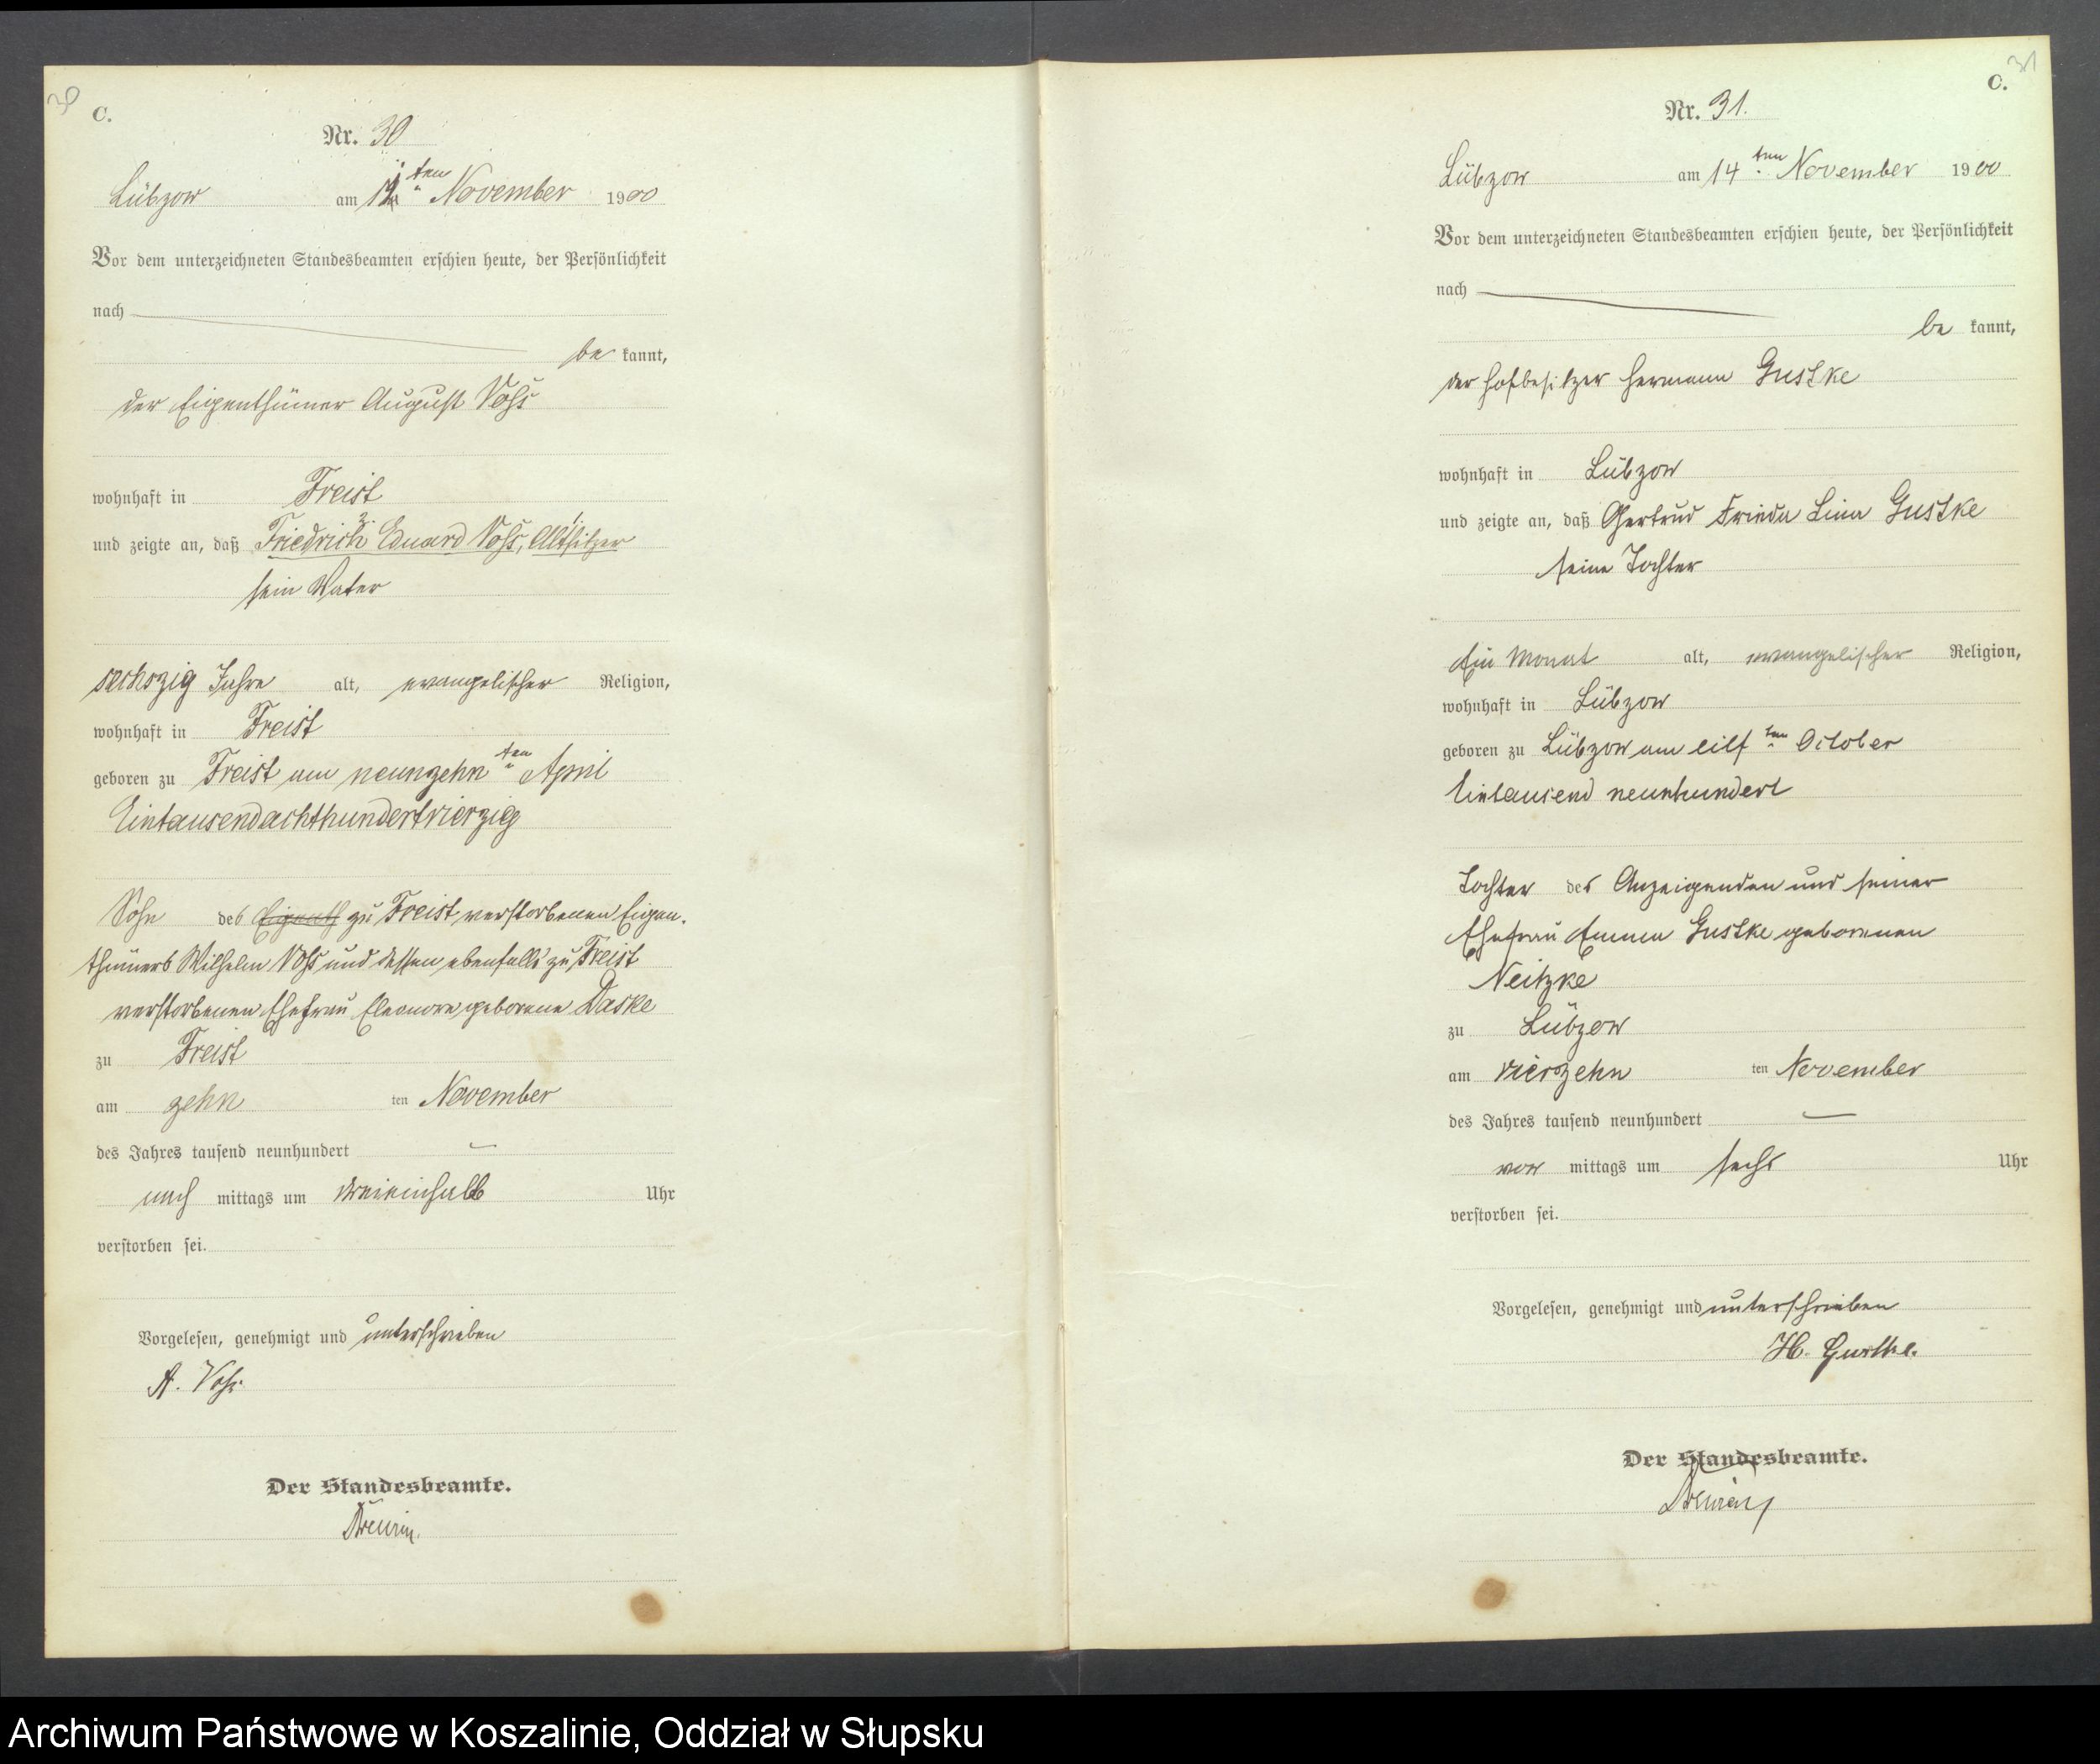 30
C.
Nr. 30
Lübzow am ten November 1900
Vor dem unterzeichneten Standesbeamten erschien heute, der Persönlichkeit
nach
be kannt,
der Eigenthümer August Voß
wohnhaft in Freist
und zeigte an, daß Friedrich Eduard Voß, Altsitzer
sein Vater
sechszig Jahre alt, evangelischer Religion,
wohnhaft in Freist
geboren zu Freist am neunzehn ten April
Eintausendachthundertvierzig
Sohn des Eigenth zu Freist verstorbenen Eigen-
thümers Wilhelm Voß und dessen ebenfalls zu Freist
verstorbenen Ehefrau Eleonore geborene Daske
zu Freist
am zehn ten November
des Jahres tausend neunhundert
nach mittags um dreieinhalb Uhr
verstorben sei.
Vorgelesen, genehmigt und unterschrieben
A. Voß.
Der Standesbeamte.
31
C.
Nr. 31.
Lübzow am 14 ten November 1900
Vor dem unterzeichneten Standesbeamten erschien heute, der Persönlichkeit
nach
be kannt,
der Hofbesitzer Hermann Gustke
wohnhaft in Lübzow
und zeigte an, daß Gertrud Frieda Lina Gustke
seine Tochter
Ein Monat alt, evangelischer Religion,
wohnhaft in Lübzow
geboren zu Lübzow am eilf ten October
Eintausend neunhundert
Tochter des Anzeigenden und seiner
Ehefrau Emma Gustke geborenen
Neitzke
zu Lübzow
am vierzehn ten November
des Jahres tausend neunhundert
vor mittags um sechs Uhr
verstorben sei.
Vorgelesen, genehmigt und unterschrieben
H. Gustke.
Der Standesbeamte.
Archiwum Państwowe w Koszalinie, Oddział w Słupsku